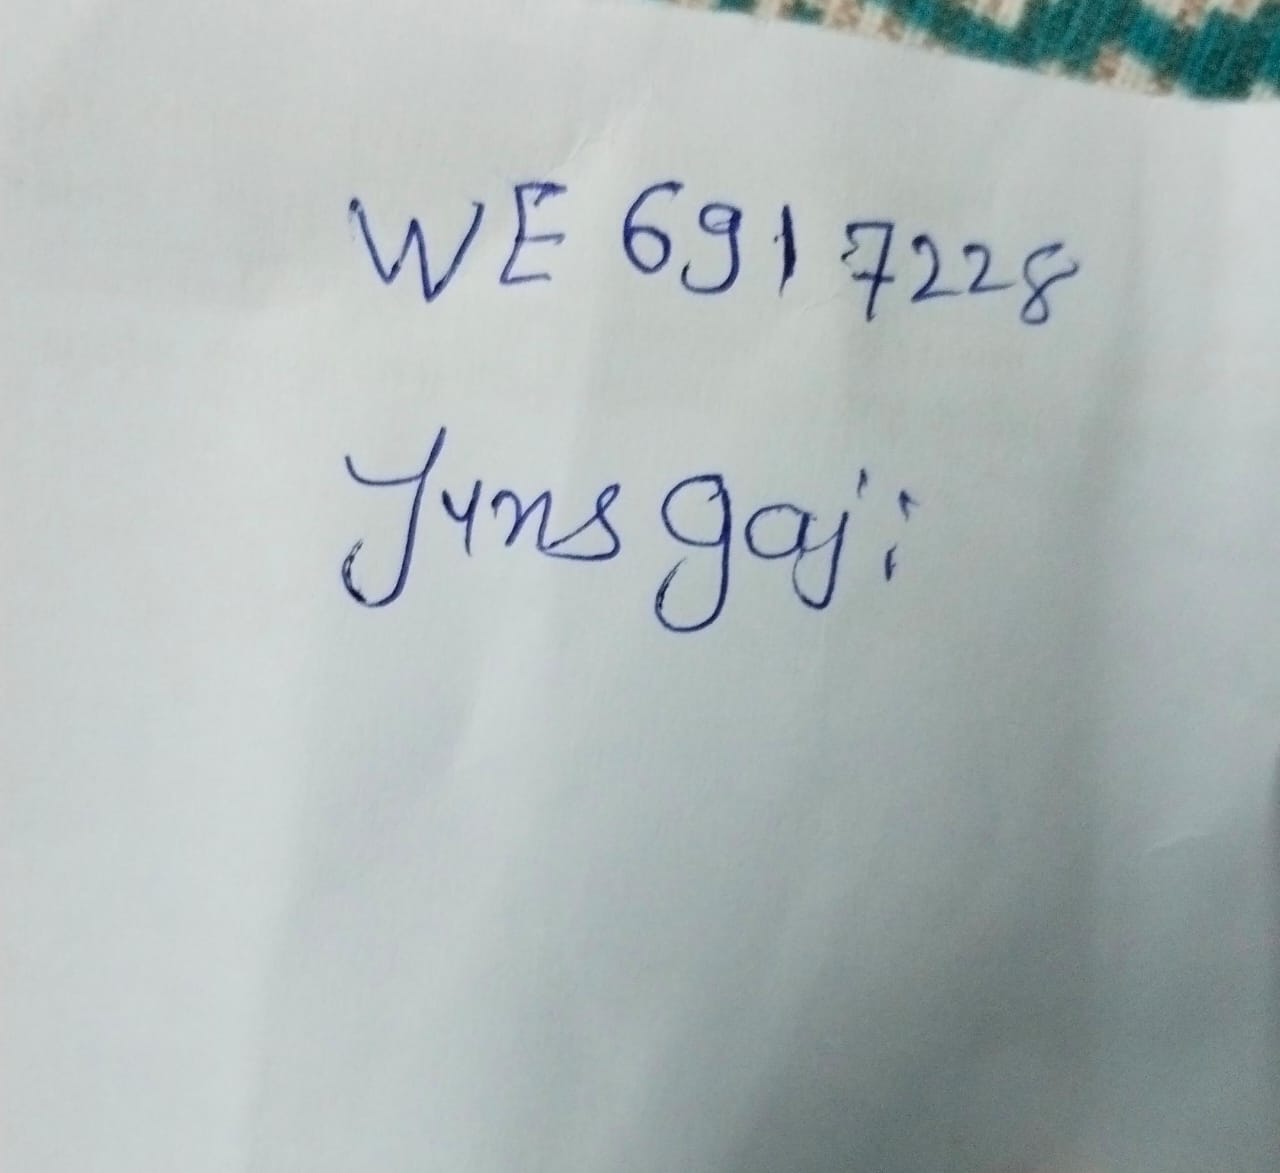 WE 691 7228
Jyns gaji